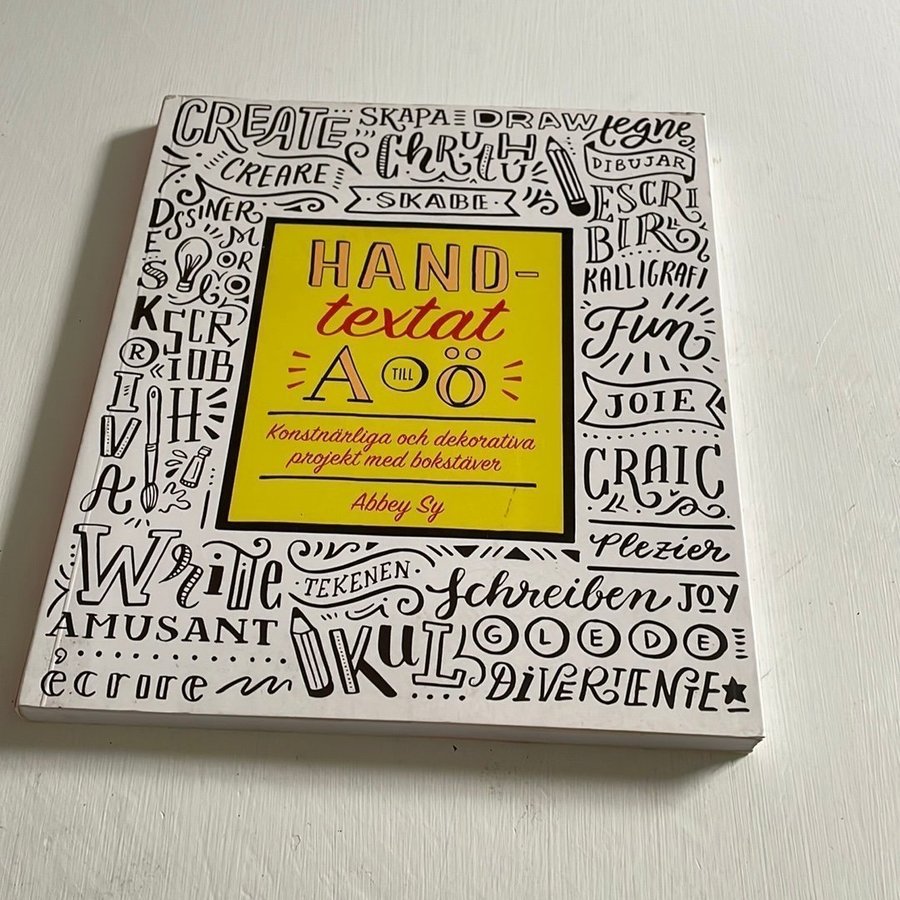 CREATE SKAPA DRAW tegne
CREARE DIBUJAR
SKABE
ESCRI
BIR
KALLIGRAFI
Fun
JOIE
CRAIC
Plezier
DSSINER
MOR
SKRIVA
SCRIOBH
HAND-
textat
A TILL Ö
Konstnärliga och dekorativa
projekt med bokstäver
Abbey Sy
Write TEKENEN Schreiben JOY
AMUSANT KUL GLEDE
écrire DIVERTENTE